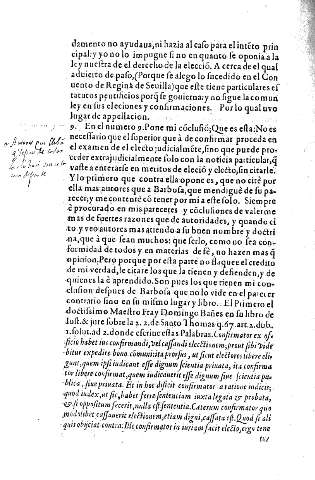 damento no ayudaua, ni hazia al caso para el intẽto prin
cipal: y yo no lo impugne si no en quanto se oponia a la
ley nuestra de el derecho de la elecciō. A cerca de el qual
aduierto de paso, (Porque se alego lo sucedido en el Con
uento de Regina de Seuilla) que este tiene particulares es
tatutos pontificios porq̃ se gouierna: y no sigue la comun
ley en sus elecciones y confirmaciones. Por lo qual uvo
lugar de appellacion.
9. En el numero 9. Pone mi cōclusiō; Que es esta: No es
necessario que el superior que à de confirmar proceda en
el examen de el electo judicialmẽte, sino que puede pro-
ceder extrajudicialmente solo con la noticia particular, q̃
vaste a enterarse en meritos de eleciō y electo, sin citarle.
Y lo primero que contra ella pone es, que no cité por
ella mas autores que a Barbosa, que mendigué de su pa-
recer, y me contenté cō tener por mi a este solo. Siempre
è procurado en mis pareceres y cōclusiones de valerme
mas de fuertes razones que de autoridades, y quando ci
to y veo autores mas attiendo a su buen nombre y doctri
na, que à que sean muchos: que serlo, como no sea con-
formidad de todos y en materias de fé, no hazen mas q̃
opinion, Pero porque por esta parte no flaquee el credito
de mi verdad, le citare los que la tienen y defienden, y de
quienes la è aprendido. Son pues los que tienen mi con-
clusion despues de Barbosa que no lo vide en el parecer
contrario sino en su mismo lugar y libro. El Primero el
doctissimo Maestro Fray Domingo Bañes en su libro de
Iust. & jure sobre la 2. 2. de Santo Thomas q. 67. art. 2. dub.
2. solut. ad 2. donde escriue estas Palabras. Confirmator ex offi
ficio habet ius confirmandi, vel cassandi electionem, prout sibi vide
bitur expedire bono communi: ta prorsus, ut sicut electores libere eli-
gunt, quem ipsi iudicant esse dignum scientia privata, ita confirma
tor libere confirmat, quem iudicauerit esse dignum, siue scientia pu-
blica, siue privata. Et in hoc distat confirmator a ratione iudicis,
quod iudex, ut sic, habet ferre sententiam iuxta legata & probata,
& si oppositum fecerit, nulla est sententia. Cæterum confirmator quo
modolibet cassauerit electionem, etiam digni, cassata est. Quod si ali
quis obijciat contra: Iste confirmator in iustam facit electio, ergo tene
tur